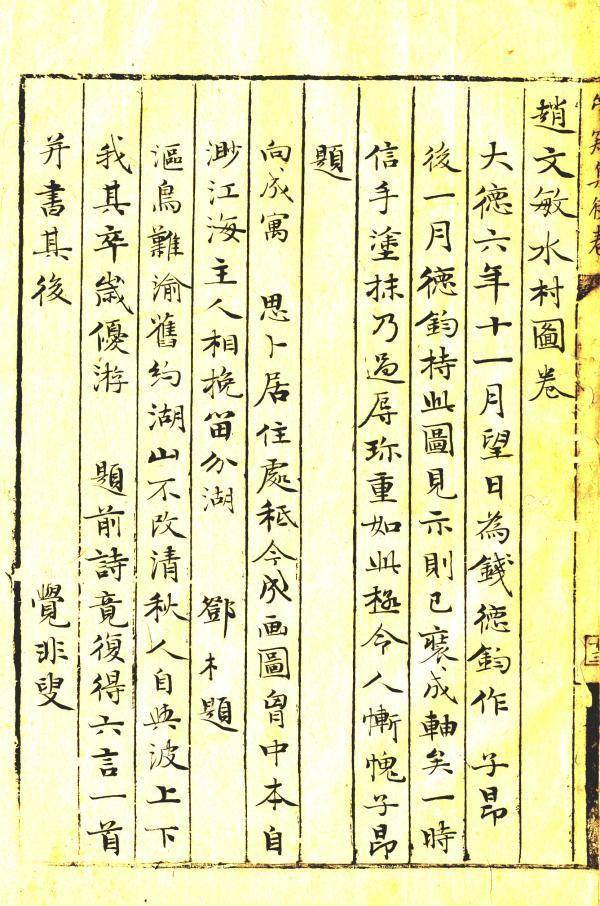 趙文敏水村圖卷
大德六年十一月望日為錢德鈞作 子昂
後一月德鈞持此圖見示則已裝成軸矣一時
信手塗抹乃過辱珎重如此極令人慚愧子昂
題
向成寓 思卜居住處秪今成画圖胷中本自
渺江海主人相挽留分湖 鄧木題
漚鳥難渝舊約湖山不改清秋人自與波上下
我其卒歲優游 題前詩竟復得六言一首
并書其後 覺非叟